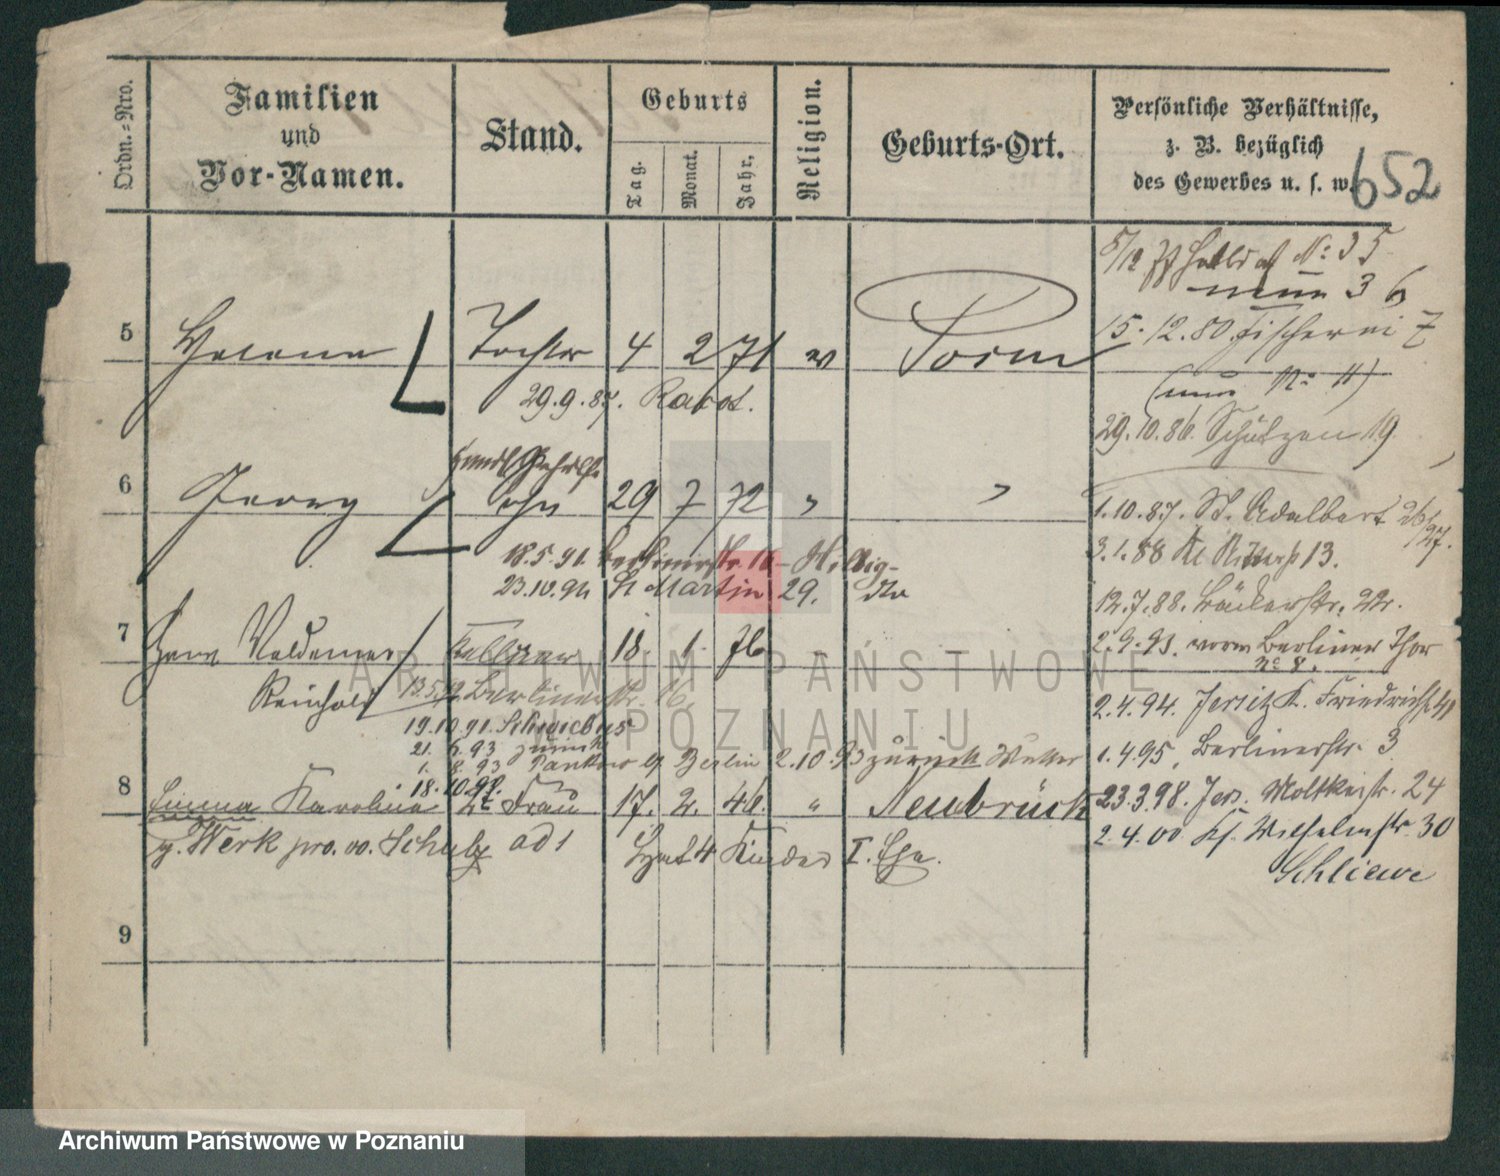 Ordn.=Nro.
Familien
und
Vor-Namen.
Stand.
Geburts
Tag.
Monat.
Jahr.
Religion.
Geburts-Ort.
Persönliche Verhältnisse,
z. B. bezüglich
des Gewerbes u. s. w.
652
5/12 Halbdorf No: 35
nun 36
5 Helene Tochter 4 2 71 ev Posen
15.12.80 Fischerei 7
(nun No: 11)
29.9.87.
29.10.86. Schützen 19
6 Georg Sohn 29 7 72 " "
1.10.87. St. Adalbert 26/27.
18.5.91. Berlinerstr. 10 - Hillig-
3.1.88 Kl Ritterst 13.
23.10.91 St Martin 29.
12.7.88. Bäckerstr. 22.
7 Hans Valdemar Kellner 18 1. 76
2.9.93. vorm Berliner Thor
No 8.
Reinhold Berlinerstr. 16.
2.4.94. Jersitz K. Friedrichst
19.10.91. Schwiebus
21. 6.93 zurück
1. 8. 93 Pankow b/ Berlin 2.10.93 zurück Mutter
1.4.95, Berlinerstr. 3
18.10.91.
8 Emma Karolina 2te Frau 17. 2. 46. " Neubrück
23.3.98. Jers. Moltkestr. 24
g. Werk pro. vo. Schulz ad 1 4 Kinder I. Ehe.
2.4.00 Wilhelmstr. 30
Schliewe
9
ARCHIWUM PAŃSTWOWE
W POZNANIU
Archiwum Państwowe w Poznaniu